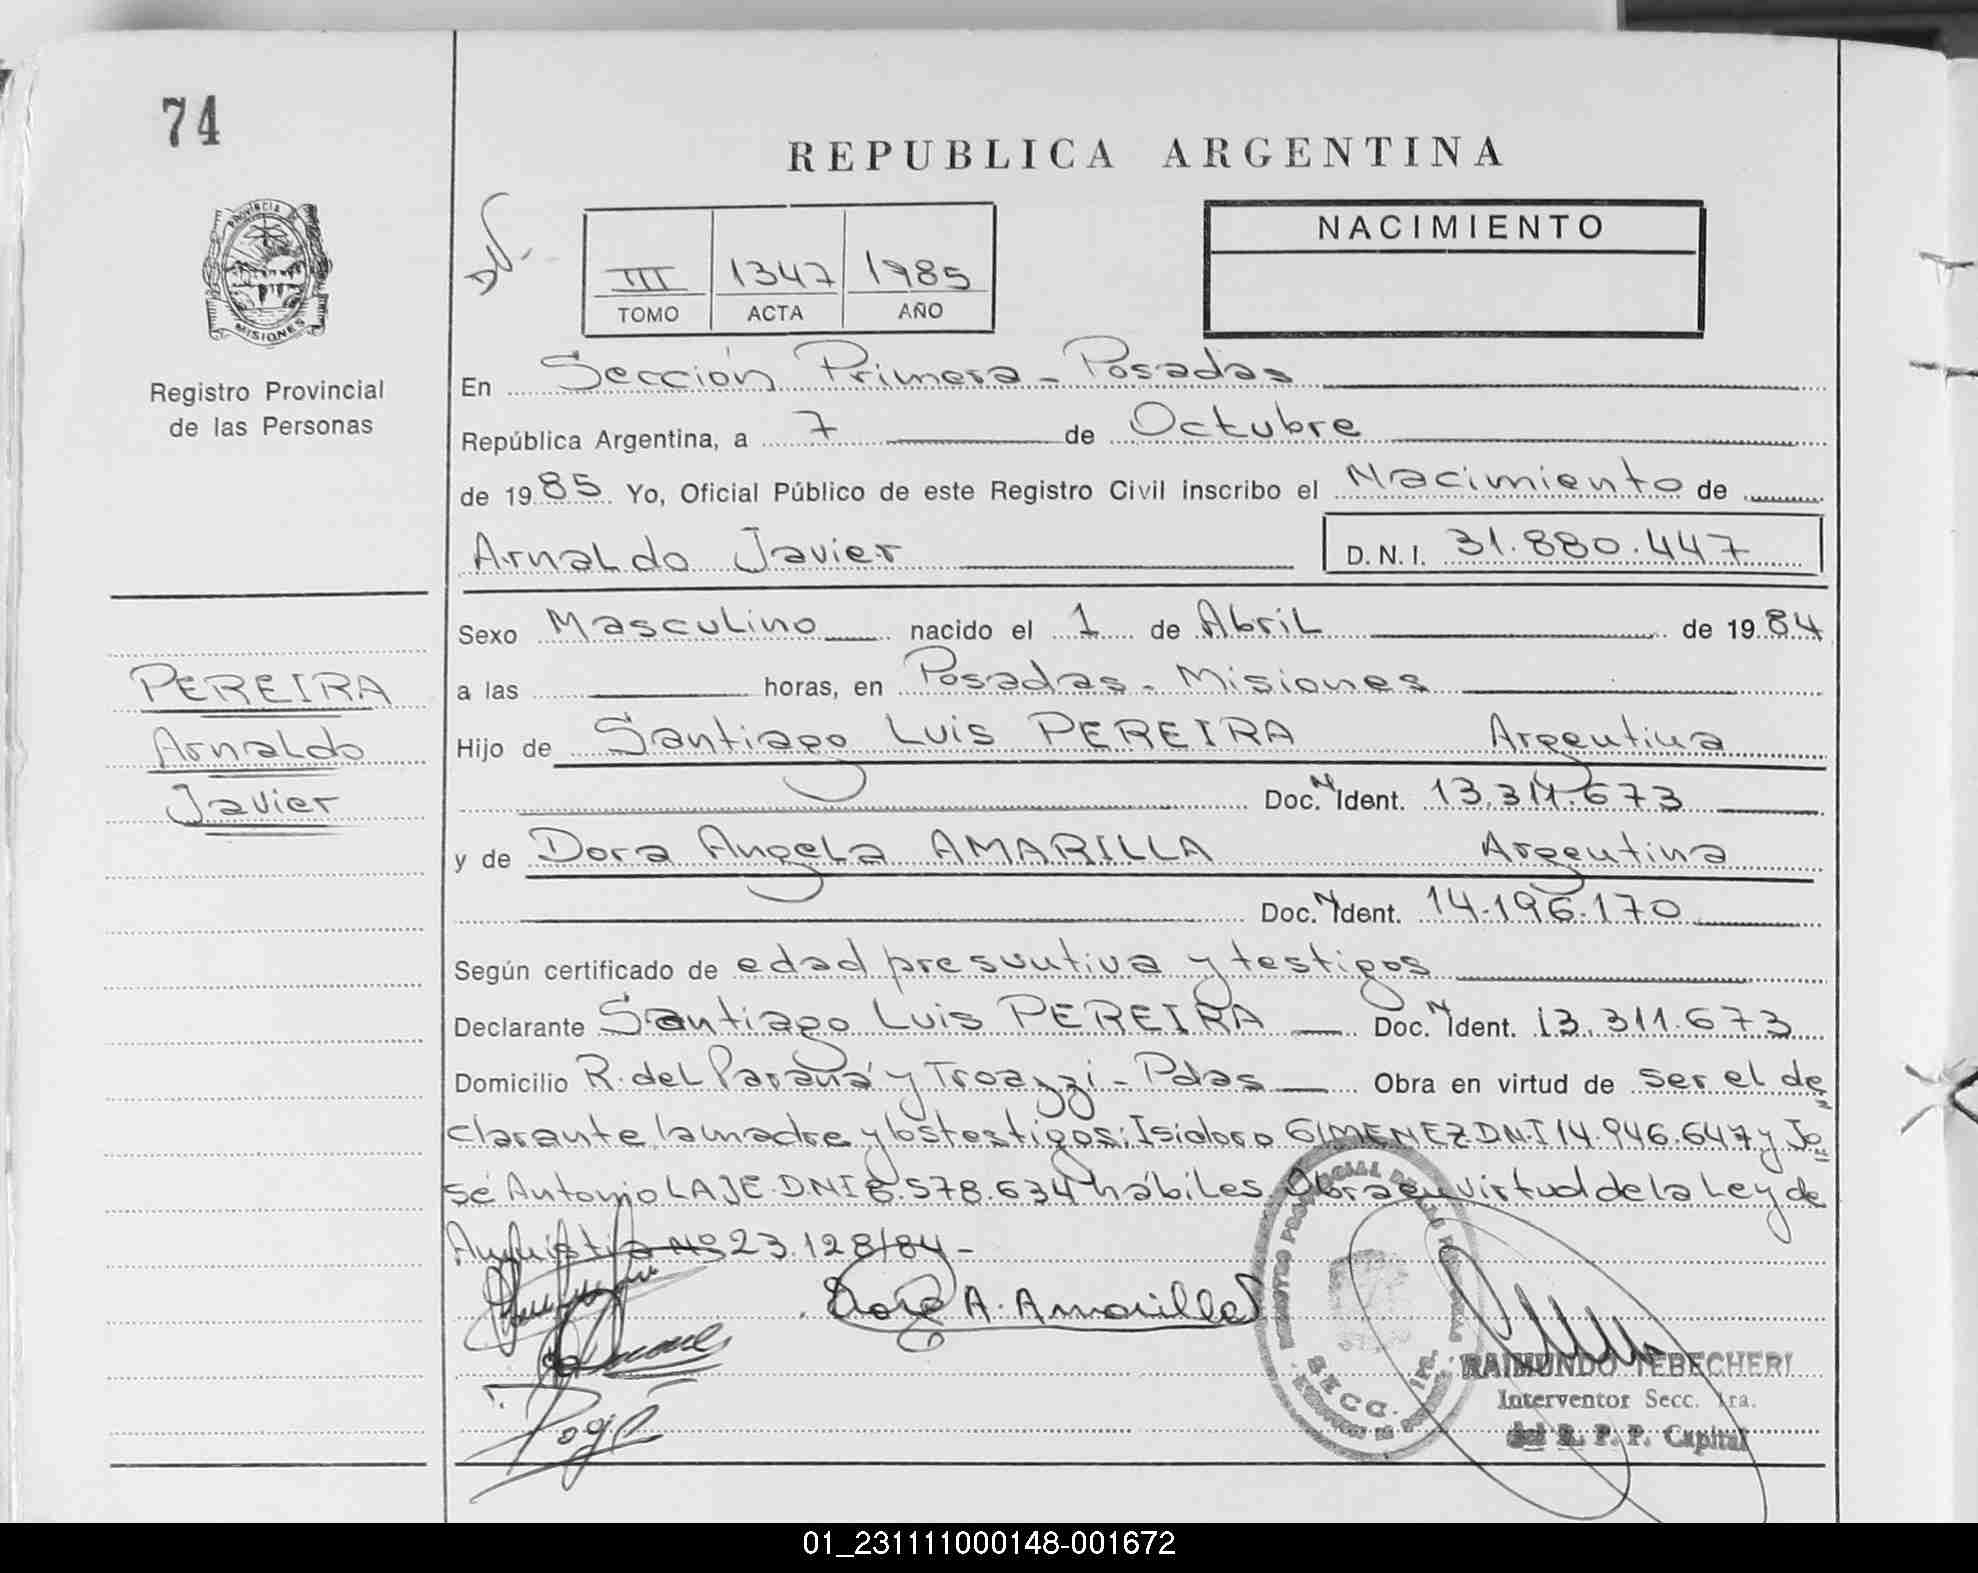 74
REPUBLICA ARGENTINA
PROVINCIA DE
MISIONES
Registro Provincial
de las Personas
III 1347 1985
TOMO ACTA AÑO
NACIMIENTO
En Sección Primera - Posadas
República Argentina, a 7 de Octubre
de 1985 Yo, Oficial Público de este Registro Civil inscribo el Nacimiento de
Arnaldo Javier D.N.I. 31.880.447
Sexo Masculino nacido el 1 de Abril de 1984
a las horas, en Posadas - Misiones
PEREIRA
Arnaldo
Javier
Hijo de Santiago Luis PEREIRA Argentina
Doc. N Ident. 13.311.673
y de Dora Angela AMARILLA Argentina
Doc. N Ident. 14.196.170
Según certificado de edad presuntiva y testigos
Declarante Santiago Luis PEREIRA Doc. N Ident. 13.311.673
Domicilio R. del Paraná y Troazzi - Pdas Obra en virtud de ser el de
clarante la madre y los testigos: Isidoro GIMENEZ DNI 14.946.647 y Jo
sé Antonio LAJE DNI 8.578.634 hábiles Obra en virtud de la Ley de
Amnistia Nº 23.128/84 -
Dora A. Amarilla
SECC. 1ra.
RAIMUNDO TEBECHERI
Interventor Secc. 1ra.
del R. P. P. Capital
01_231111000148-001672